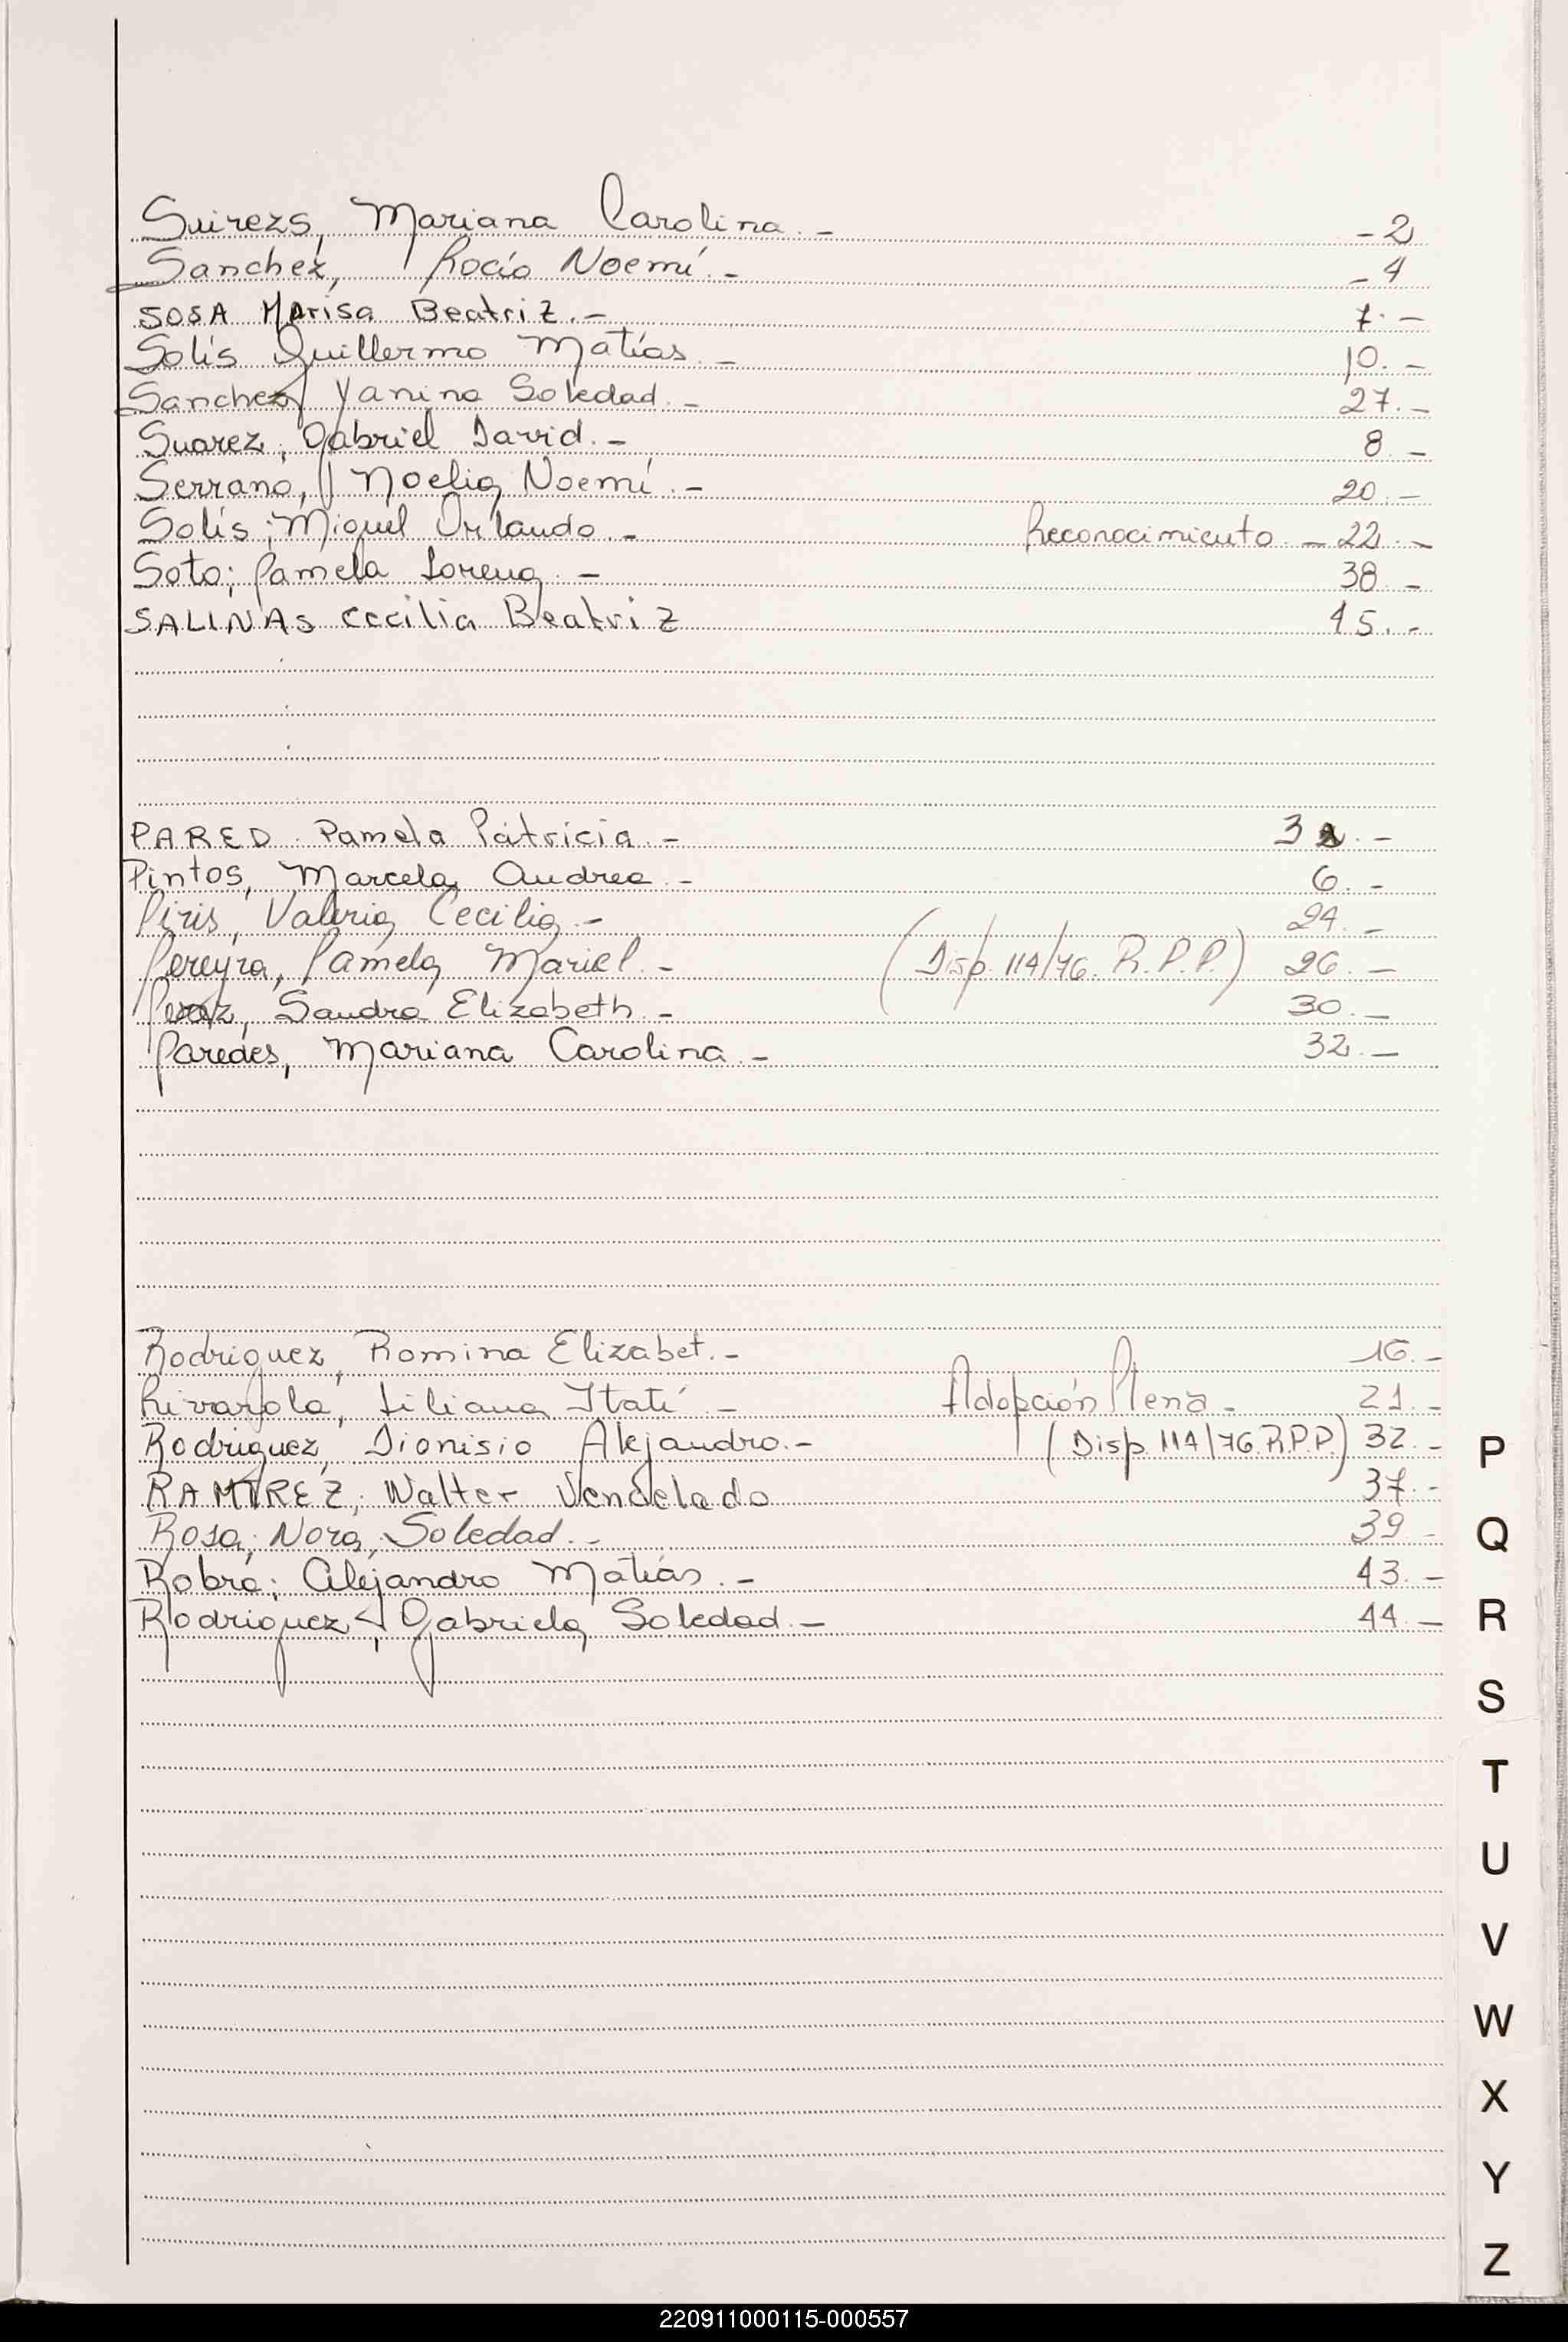 Suirezs, Mariana Carolina.- -2
Sanchez, Rocío Noemí.- -4
SOSA Marisa Beatriz.- 7.-
Solís Guillermo Matías.- 10.-
Sanchez, Yanina Soledad.- 27.-
Suarez, Gabriel David.- 8.-
Serrano, Noelia Noemí.- 20.-
Solís; Miguel Orlando.- Reconocimiento.- 22.-
Soto; Pamela Lorena.- 38.-
SALINAS Cecilia Beatriz 45.-
PARED Pamela Patricia.- 3 .-
Pintos, Marcela Andrea.- 6.-
Piris, Valeria Cecilia.- 24.-
Pereyra, Pamela Mariel.- (Disp. 114/76. R.P.P.) 26.-
Sandra Elizabeth.- 30.-
Paredes, Mariana Carolina.- 32.-
Rodriguez, Romina Elizabet.- 16.-
Rivarola, Liliana Itatí.- Adopción Plena.- 21.-
Rodriguez, Dionisio Alejandro.- (Disp. 114/76. R.P.P.) 32.-
RAMIREZ, Walter Vendelado 37.-
Rosa; Nora, Soledad.- 39.-
Robra; Alejandro Matías.- 43.-
Rodriguez, Gabriela Soledad.- 44.-
P
Q
R
S
T
U
V
W
X
Y
Z
220911000115-000557